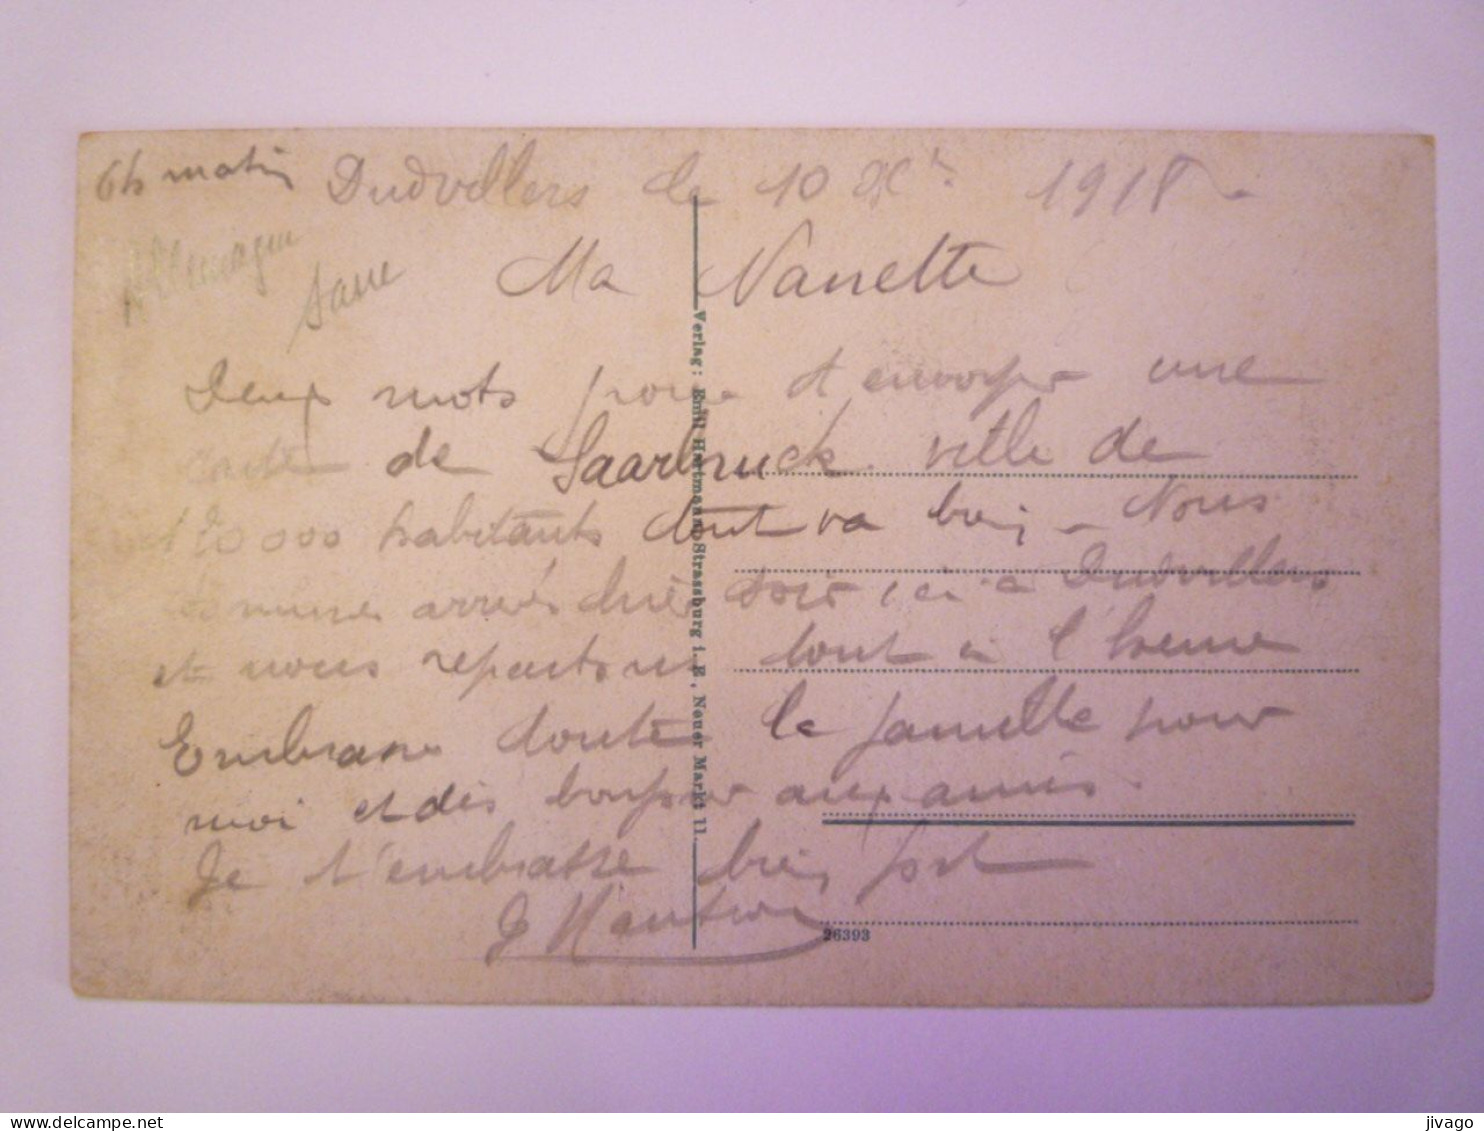 6h matin
Dudvillers le 10 Xbre 1918
Allemagne
Sarre
Ma Nanette
Deux mots pour t'envoyer une
carte de Saarbruck ville de
120 000 habitants tout va bien - Nous
sommes arrivés hier soir ici à Dudvillers
et nous repartons tout à l'heure
Embrasse toute la famille pour
moi et dis bonjour aux amis.
Je t'embrasse bien fort
Verlag: Emil Hartmann, Strassburg i. E., Neuer Markt 11.
26393
jivago